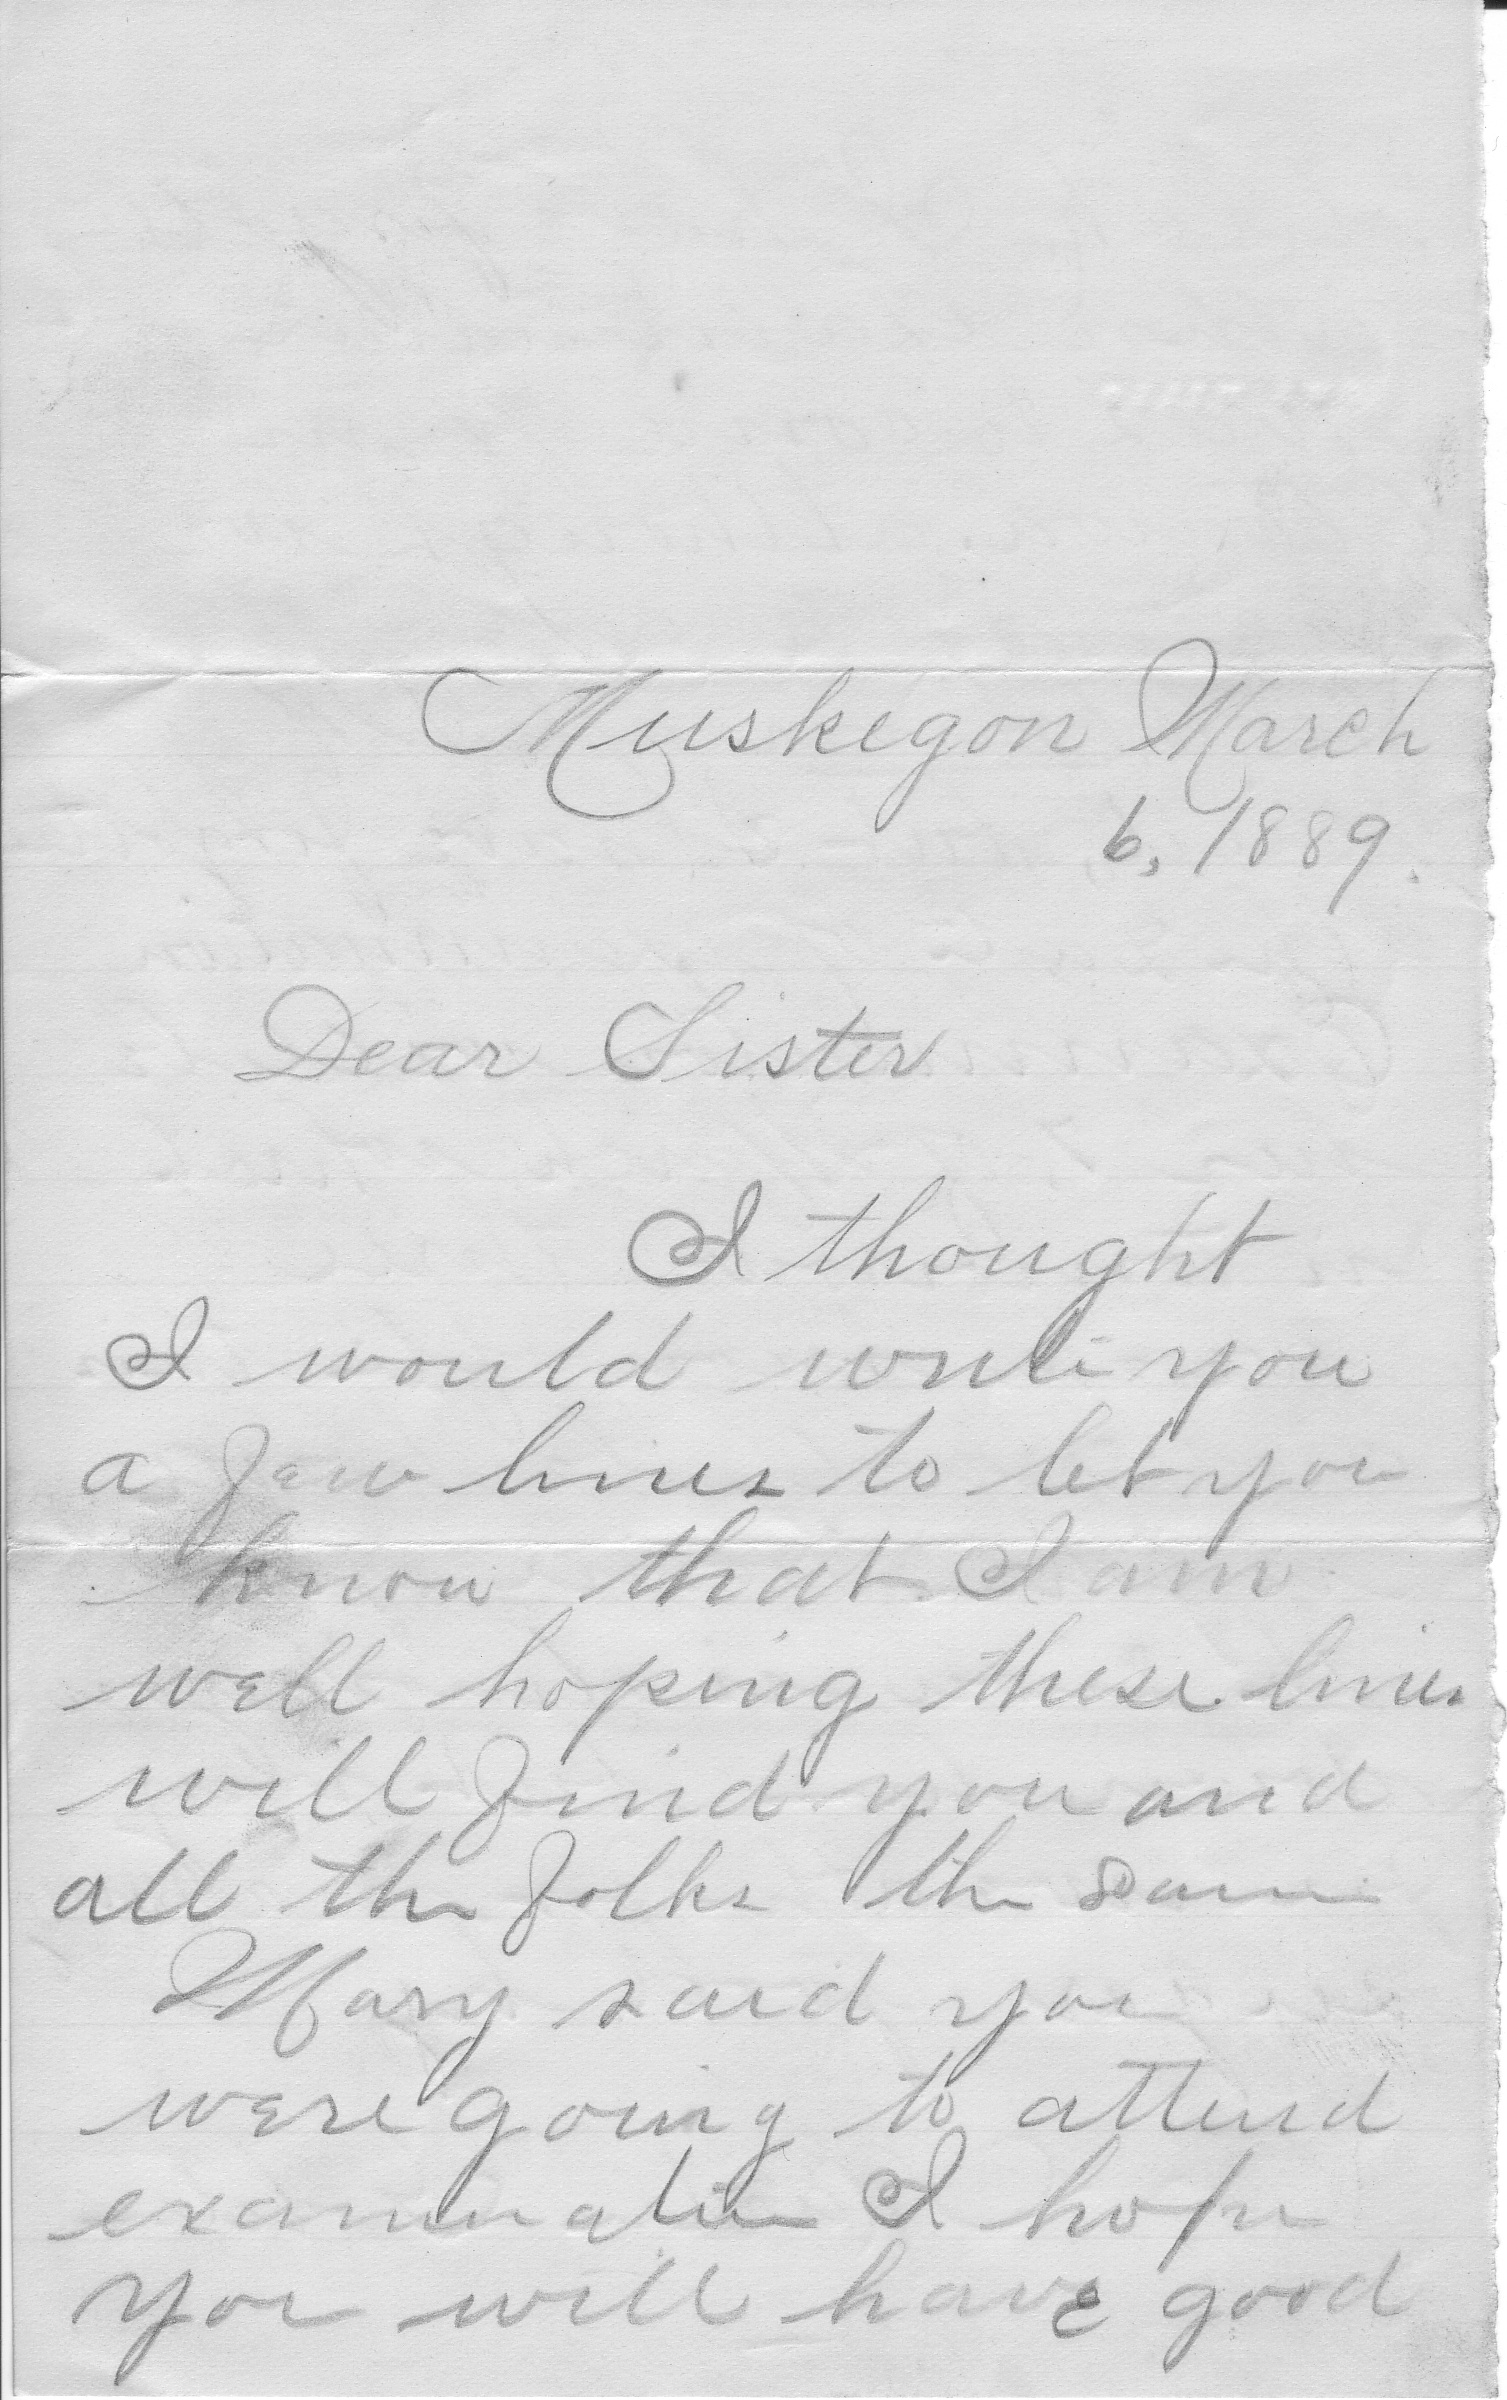 Muskegon March
6, 1889.
Dear Sister
I thought
I would write you
a few lines to let you
know that I am
well hoping these lines
will find you and
all the folks the same
Mary said you
were going to attend
examination I hope
you will have good